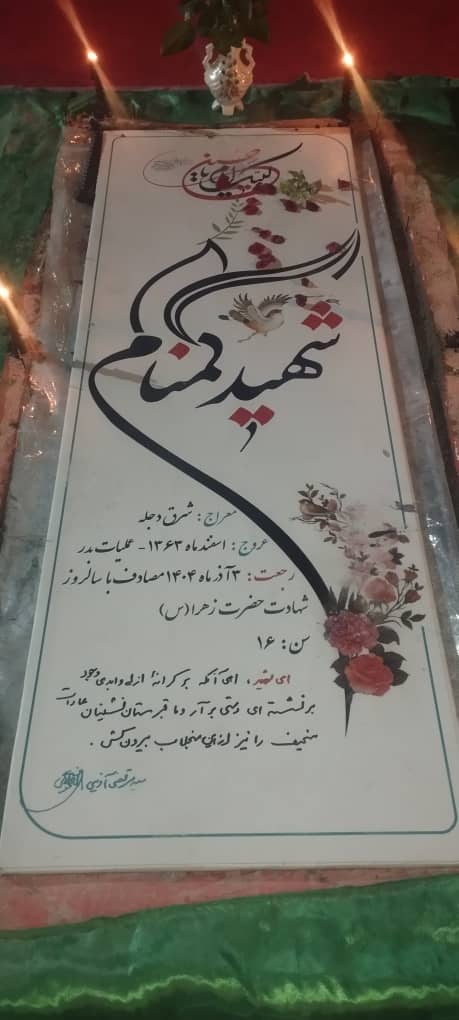 لبیک یا حسین
شهید گمنام
معراج: شرق دجله
عروج: اسفند ماه ۱۳۶۳ - عملیات بدر
رجعت: ۳ آذر ماه ۱۴۰۴ مصادف با سالروز
شهادت حضرت زهرا (س)
سن: ۱۶
ای شهید، ای آنکه بر کرانهٔ ازلی و ابدی وجود
بر نشسته ای دستی برآر و ما قبرستان نشینان عادات
سخیف را نیز از این منجلاب بیرون کش.
سید مرتضی آوینی